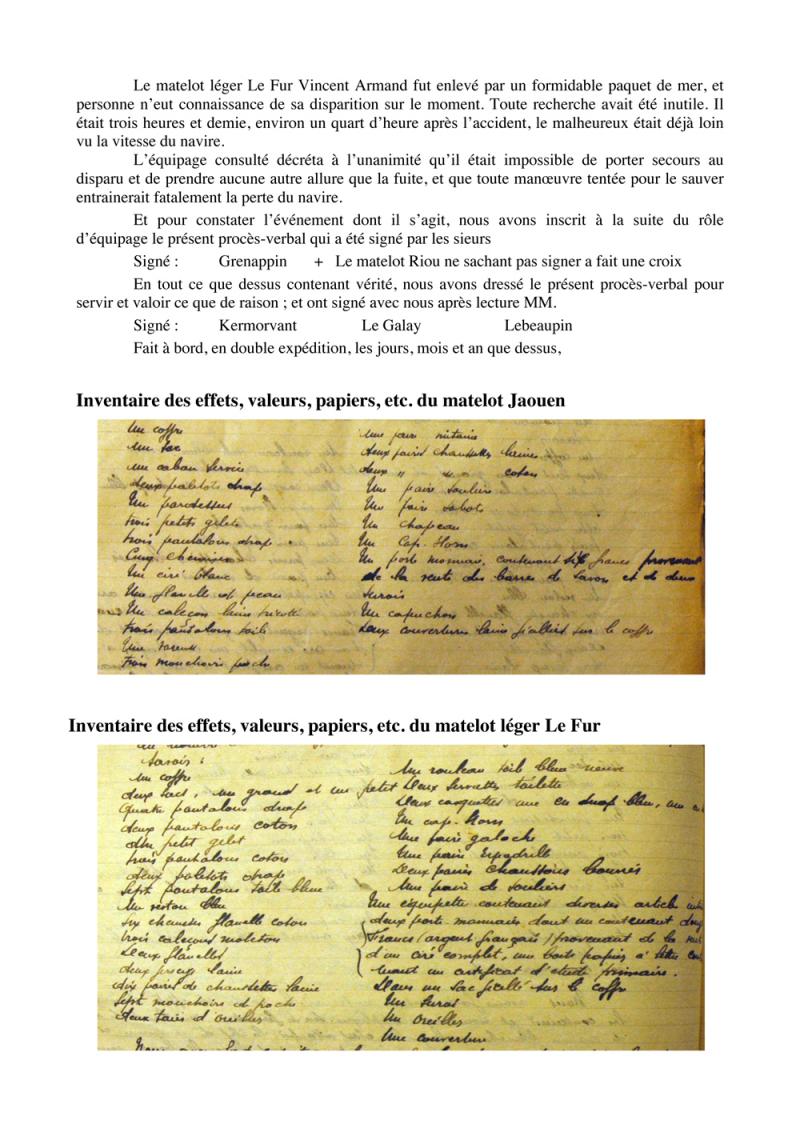 Le matelot léger Le Fur Vincent Armand fut enlevé par un formidable paquet de mer, et
personne n'eut connaissance de sa disparition sur le moment. Toute recherche avait été inutile. Il
était trois heures et demie, environ un quart d'heure après l'accident, le malheureux était déjà loin
vu la vitesse du navire.
L'équipage consulté décréta à l'unanimité qu'il était impossible de porter secours au
disparu et de prendre aucune autre allure que la fuite, et que toute manœuvre tentée pour le sauver
entrainerait fatalement la perte du navire.
Et pour constater l'événement dont il s'agit, nous avons inscrit à la suite du rôle
d'équipage le présent procès-verbal qui a été signé par les sieurs
Signé : Grenappin + Le matelot Riou ne sachant pas signer a fait une croix
En tout ce que dessus contenant vérité, nous avons dressé le présent procès-verbal pour
servir et valoir ce que de raison ; et ont signé avec nous après lecture MM.
Signé : Kermorvant Le Galay Lebeaupin
Fait à bord, en double expédition, les jours, mois et an que dessus,
Inventaire des effets, valeurs, papiers, etc. du matelot Jaouen
Un coffre
Un sac
un caban
deux paletots drap
Un pardessus
trois petits gilets
trois pantalons drap
Cinq chemises
Un ciré blanc
Une flanelle et peau
Un caleçon laine tricoté
trois pantalons toile
Une vareuse
trois mouchoirs poche
Une paire mitaine
deux paires chaussettes laines
deux " " coton
Une paire souliers
Une paire sabots
Un chapeau
Un Cap-Horn
Un porte monnaie, contenant francs provenant
de la vente des barres de savon et de deux
surois
Un capuchon
Deux couvertures laine sur le coffre
Inventaire des effets, valeurs, papiers, etc. du matelot léger Le Fur
Savoir :
un coffre
deux sacs, un grand et un petit
Quatre pantalons drap
deux pantalons coton
un petit gilet
trois pantalons coton
deux paletots drap
Sept pantalons toile bleue
Un veston bleu
six chemises flanelle coton
trois caleçons molleton
Deux flanelles
deux laine
dix paires de chaussettes laine
Sept mouchoirs de poche
deux taies d'oreilles
Un rouleau toile bleu neuve
Deux serviettes toilette
Deux casquettes une en drap bleu, un
Un cap-Horn
Une paire galoche
Une paire Espadrille
Deux paires chaussons bourrés
Une paire de souliers
Une contenant diverses article
deux porte monnaies dont un contenant
francs (argent français) provenant de la
d'un ciré complet, une boite papier à lettre
un certificat d'étude primaire.
Dans un sac sur le coffre
Un
Un oreilles
Une couverture